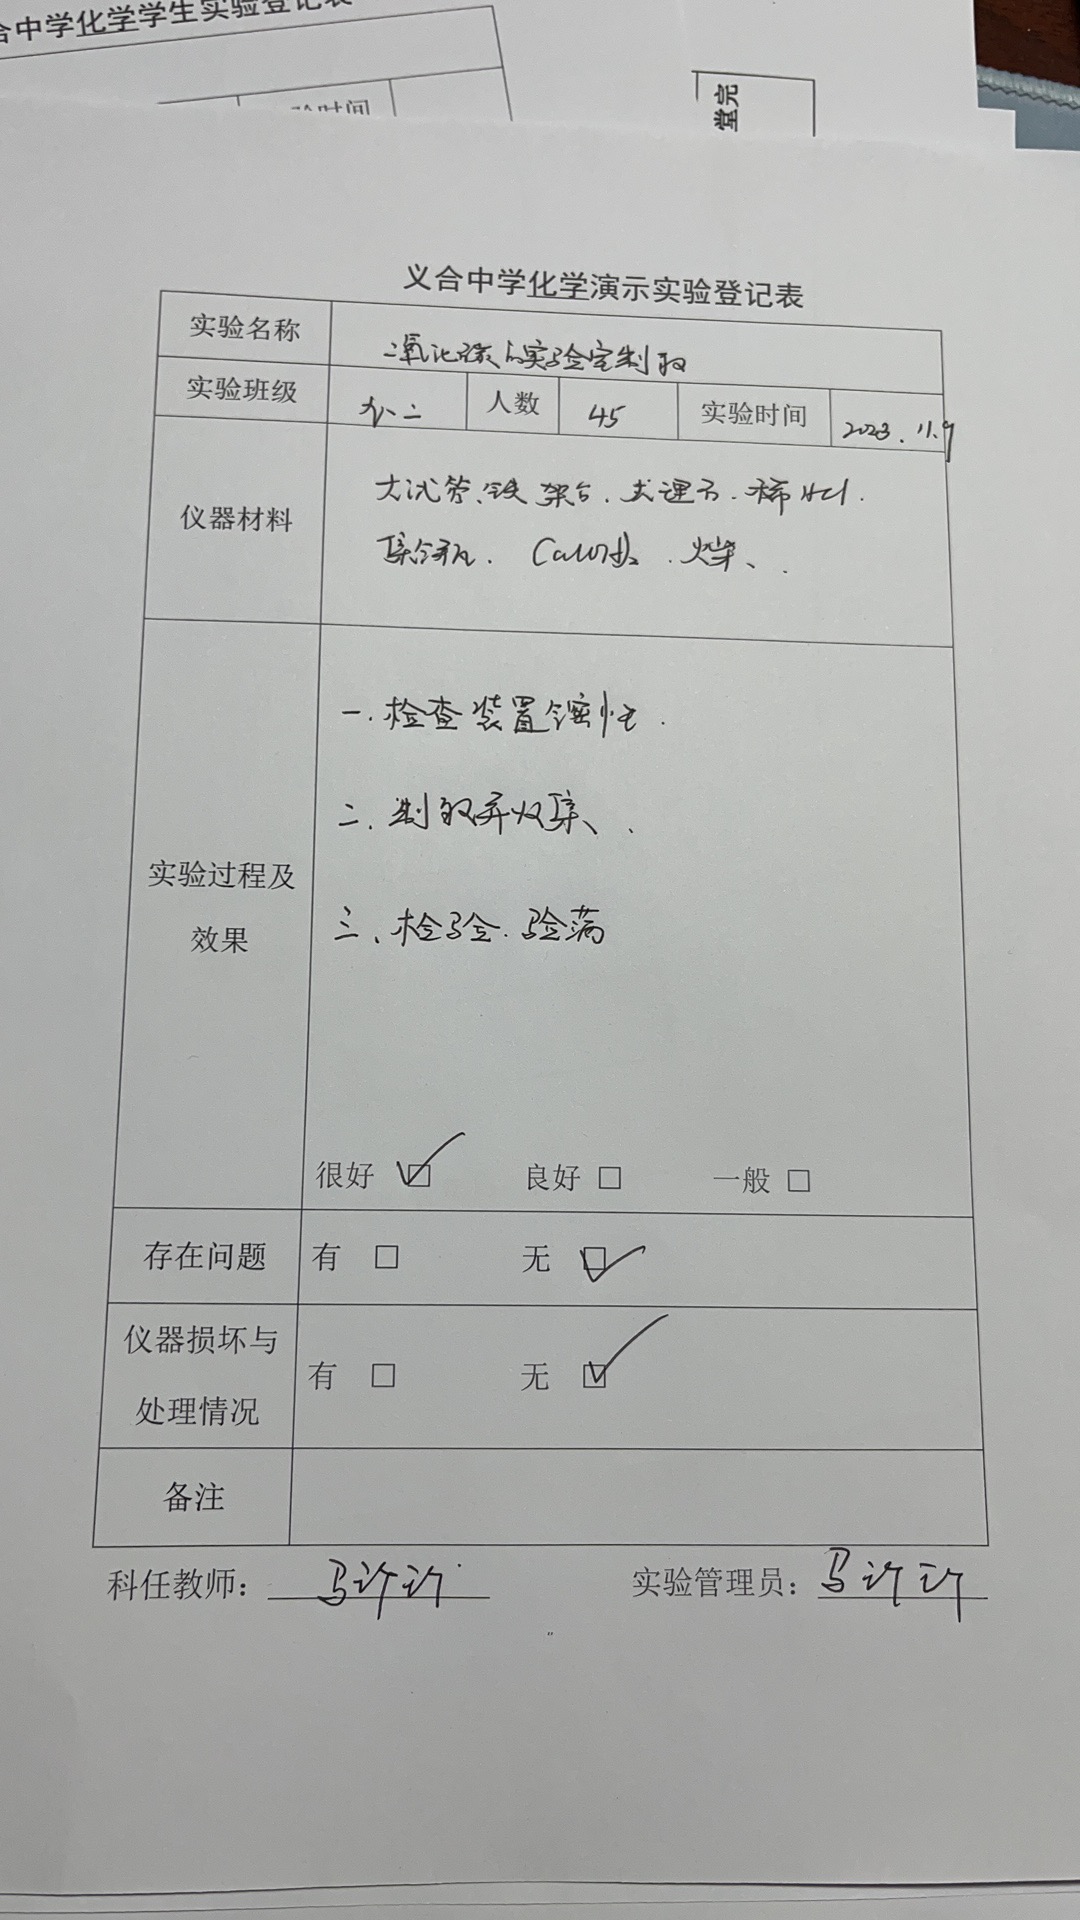 合中学化学学生实验登记表
验时间
堂完
义合中学化学演示实验登记表
实验名称 二氧化碳的实验室制取
实验班级 九.二 人数 45 实验时间 2023.11.9
仪器材料 大试管、铁架台、大理石、稀HCl.
集气瓶. Ca(OH)2. 火柴、.
一.检查装置气密性.
二、制取并收集、.
实验过程及
效果
三、检验.验满
很好 ☑ 良好 □ 一般 □
存在问题 有 □ 无 ☑
仪器损坏与
处理情况
有 □ 无 ☑
备注
科任教师：马许许 实验管理员：马许许